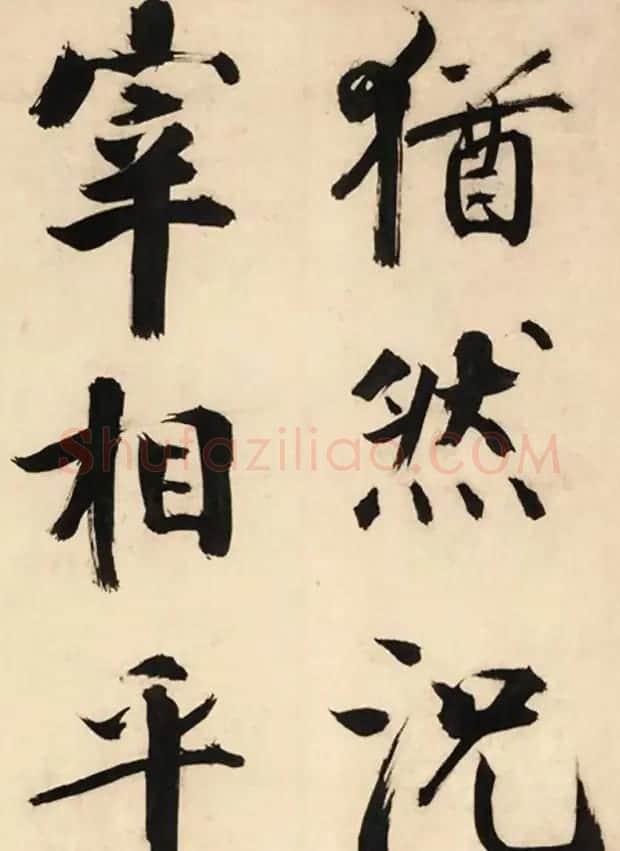 猶然況
宰相乎
Shufaziliao.COM